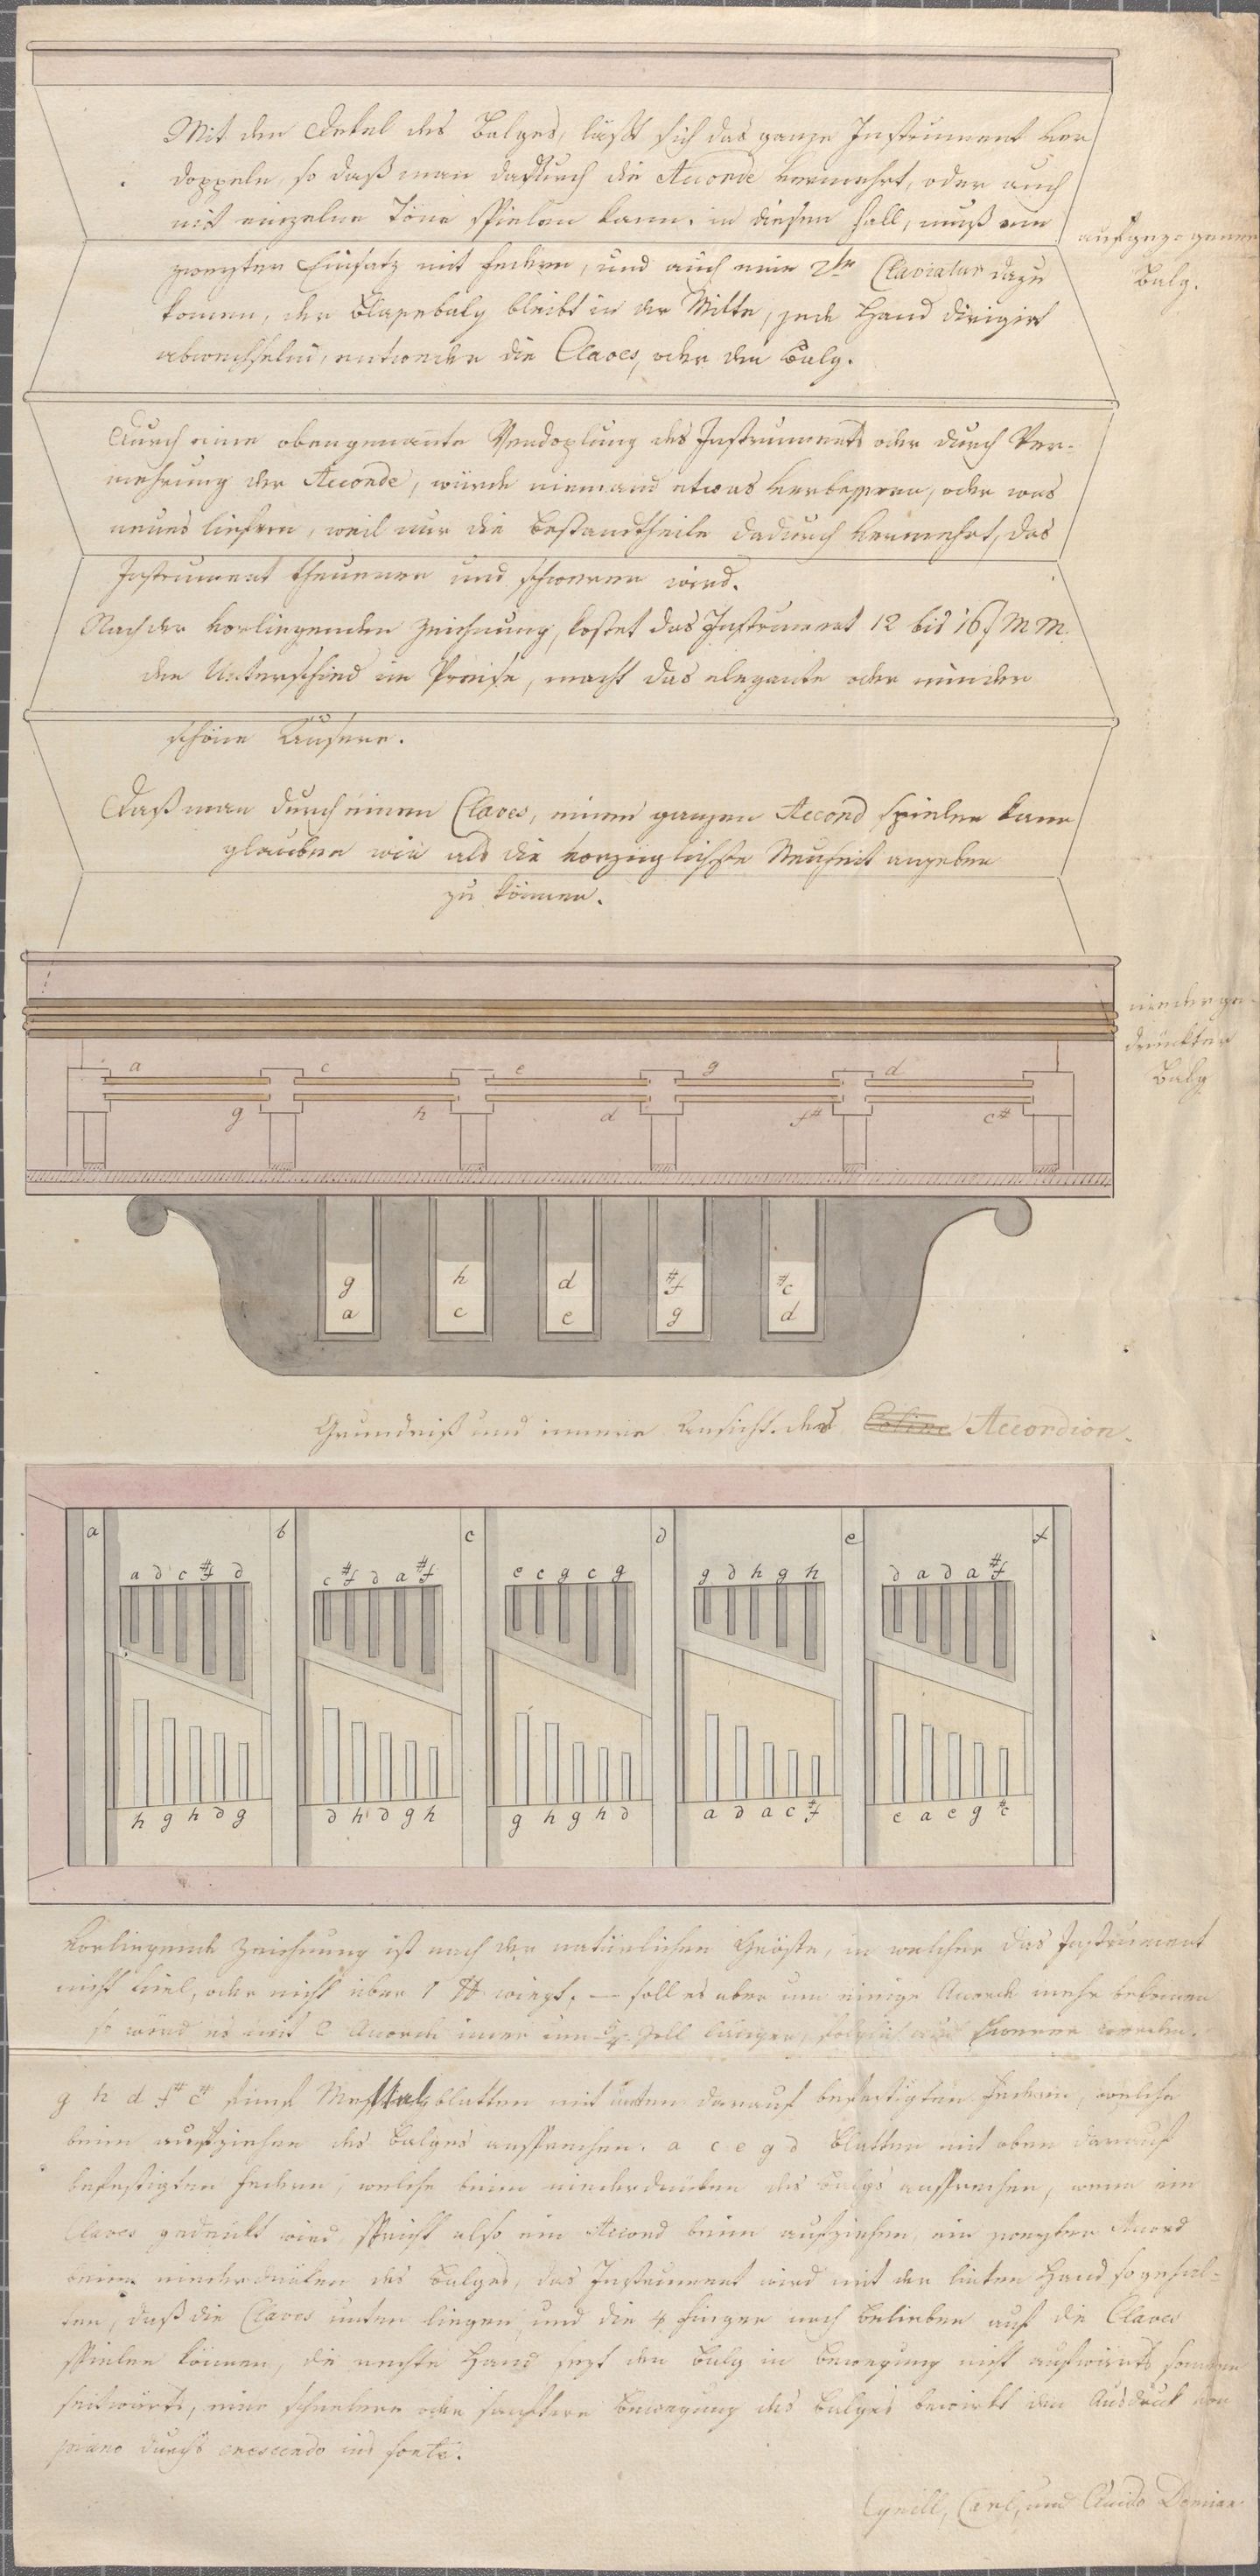 Mit den Dekel des Balges, läßt sich das ganze Instrument ver
doppeln, so daß man dadurch die Accorde vermehrt, oder auch
mit einzelne Töne spielen kann, in diesen Fall, muß ein
aufgezogener
zweyter Einsatz mit Federn, und auch eine 2te Claviatur dazu
Balg.
komen, der Blasebalg bleibt in der Mitte, jede Hand dirigirt
abwechselnd, entweder die Claves, oder den Balg.
Durch eine obengenannte Verdoplung des Instruments oder durch Ver-
mehrung der Accorde, würde niemand etwas verbesseren, oder was
neues liefern, weil nur die Bestandtheile dadurch vermehrt, das
Instrument theuerer und schwerer wird.
Nach der vorliegenden Zeichnung, kostet das Instrument 12 bis 16
den Unterschied im Preise, macht das elegante oder minder
schöne Äußere.
Daß man durch einen Claves, einen ganzen Accord spielen kann
glauben wir als die vorzüglichste Neuheit angeben
zu können.
niederge-
drückter
Balg
a c e g d
g h d f# c#
g h d #f #c
a c e g d
Grundriß und innere Ansicht des Accordion.
a b c d e f
a d c #f d
c #f d a #f
e c g c g
g d h g h
d a d a #f
h g h d g
d h d g h
g h g h d
a d a c #f
e a e g #c
Vorliegende Zeichnung ist nach der natürlichen Größe, in welcher das Instrument
nicht viel, oder nicht über 1 ℔ wiegt, — soll es aber um einige Accorde mehr bekomen
so wird es mit 2 Accorde imer um Zoll länger, folglich auch schwerer werden.
g h d f# c# sind Mettalblatten mit unten darauf befestigten Federn, welche
beim aufziehen des Balges ansprechen. a c e g d Blatten mit oben darauf
befestigten Federn, welche beim niederdrücken des Balges ansprechen, wenn ein
Claves gedrückt wird, spricht also ein Accord beim aufziehen, ein zweyter Accord
beim niederdrücken des Balges, das Instrument wird mit der linken Hand so gehal-
ten, daß die Claves unten liegen, und die 4 Finger nach Belieben auf die Claves
spielen können, die rechte Hand setzt den Balg in Bewegung nicht aufwärts sondern
seitwärts, eine schnelere oder sanftere Bewegung des Balges bewirkt den Ausdruck von
piano durchs crescendo ins forte.
Cyrill, Carl, und Guido Demian